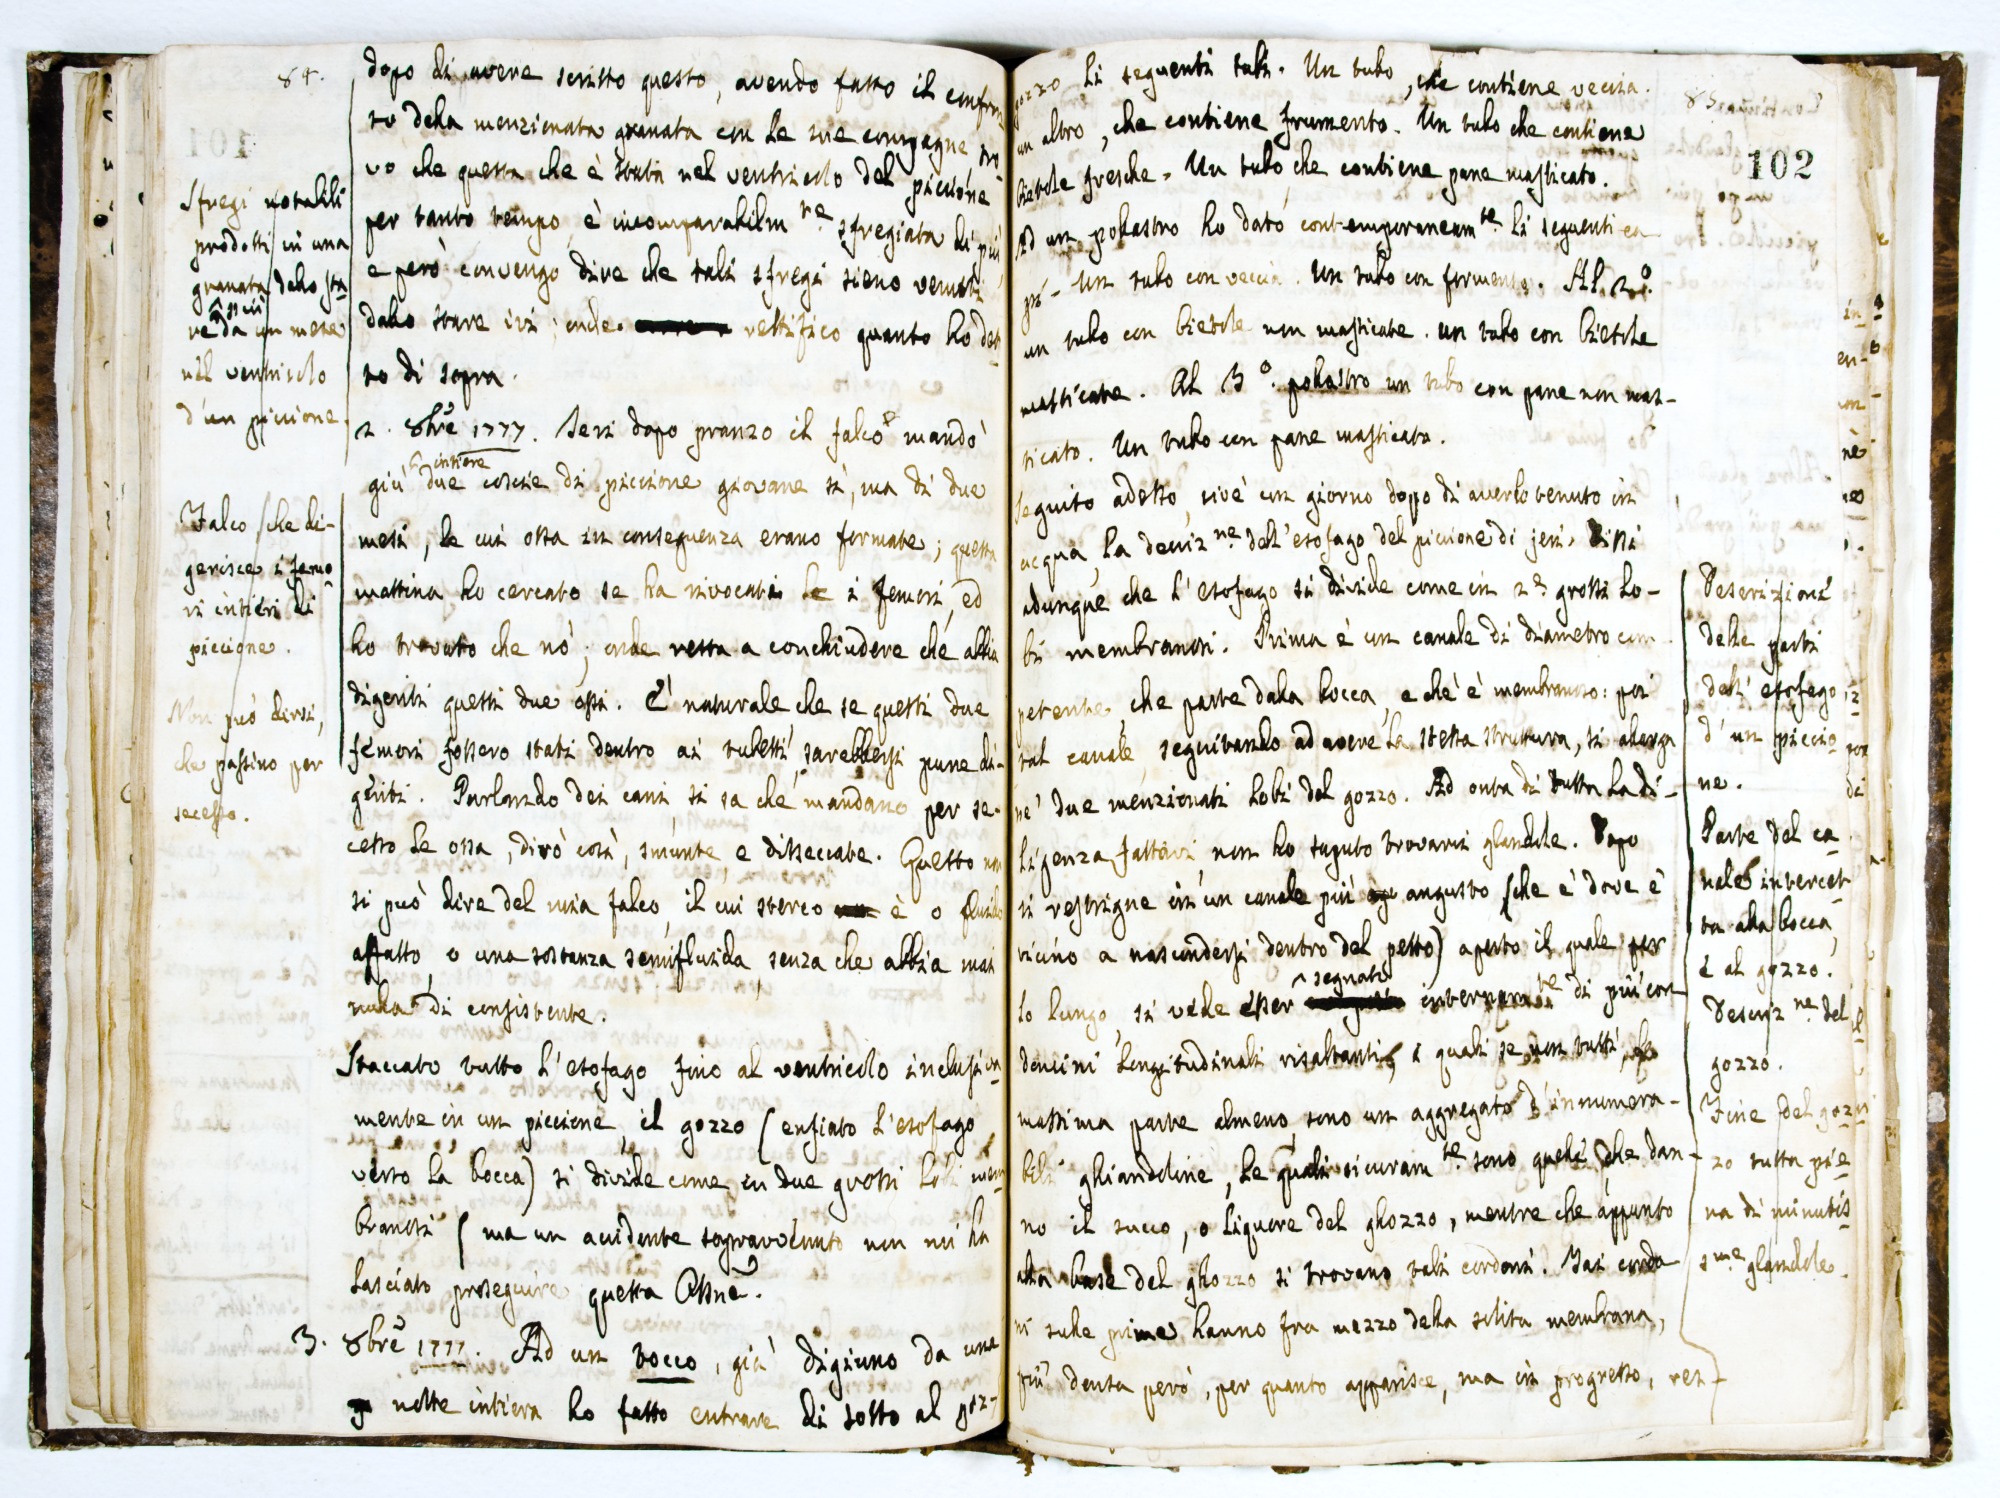 84.
dopo di avere scritto questo, avendo fatto il confron
to della menzionata granata con le sue compagne tro
vo che questa che è stata nel ventricolo del piccione
per tanto tempo è incomparabilm.te sfregiata di più
e però convengo dire che tali sfregi sieno venuti
dallo stare ivi; onde rettifico quanto ho det
to di sopra.
Sfregi notabili
prodotti in una
granata dallo sta
re più da un mese
nel ventricolo
d'un piccione.
2. 8bre 1777. Jeri dopo pranzo il falco mandò
giù due intiere coscie di piccione giovane sì, ma di due
mesi, le cui ossa in conseguenza erano formate; questa
mattina ho cercato se ha rivocati le i femori, ed
ho trovato che nò; onde resta a conchiudere che abbia
digeriti questi due ossi. E' naturale che se questi due
femori fossero stati dentro ai tubetti, sarebbersi pure di-
geriti. Parlando dei cani si sa che mandano per se-
cesso le ossa, dirò così, smunte, e disseccate. Questo non
si può dire del mio falco, il cui sterco è o fluido
affatto, o una sostanza semifluida, senza che abbia mai
nulla di consistente.
Falco che di-
gerisce i femo
ri intieri di
piccione.
Non può dirsi,
che passino per
secesso.
Staccato tutto l'esofago fino al ventricolo inclusiva
mente in un piccione, il gozzo (enfiato l'esofago
verso la bocca) si divide come in due grossi lobi mem
branosi (ma un accidente sopravvenuto non mi ha
lasciato proseguire questa Ossne.
3. 8bre 1777. Ad un tocco, già digiuno da una
notte intiera ho fatto entrare di sotto al goz-
85.
102
gozzo li seguenti tubi. Un tubo, che contiene veccia.
un altro, che contiene frumento. Un tubo che contiene
bietole fresche. Un tubo che contiene pane masticato.
Ad un pollastro ho dato contemporaneam.te li seguenti ca
pi- Un tubo con veccia. Un tubo con formento. Al 2.o
un tubo con bietole non masticate. un tubo con bietole
masticate. Al 3o. pollastro un tubo con pane non mas-
ticato. Un tubo con pane masticato.
Seguito adesso, cioè un giorno dopo di averlo tenuto in
acqua, la descriz.ne dell'esofago del piccione di jeri. Dissi
adunque che l'esofago si divide come in 2 grossi lo-
bi membranosi. Prima è un canale di diametro com
petente, che parte dalla bocca, e che è membranoso: poi
tal canale, seguitando ad avere la stessa struttura, si alarga
ne' due menzionati lobi del gozzo. Ad onta di tutta la di-
ligenza fattavi non ho saputo trovarvi glandole. Dopo
si restrigne in un canale più angusto (che è dove è
vicino a nascondersi dentro del petto) aperto il quale per
lo lungo, si vede esser segnato internam.te di più cor
doncini longitudinali risaltanti, i quali se non tutti, la
massima parte almeno, sono un aggregato d'innumera-
bili ghiandoline, le quali sicuram.te sono quelle che dan-
no il succo, o liquore del ghozzo, mentre che appunto
alla base del ghozzo si trovano tali cordoni. Tai cordo
ni sulle prime hanno fra mezzo della solita membrana,
più densa però, per quanto apparisce, ma in progresso, res-
Descrizioni
delle parti
dell'esofago
d'un piccio
ne.
Parte del ca
nale intercet
ta alla bocca,
e al gozzo.
Descriz.ne del
gozzo.
Fine del goz
zo tutta pie
na di minutis
s.me glandole.